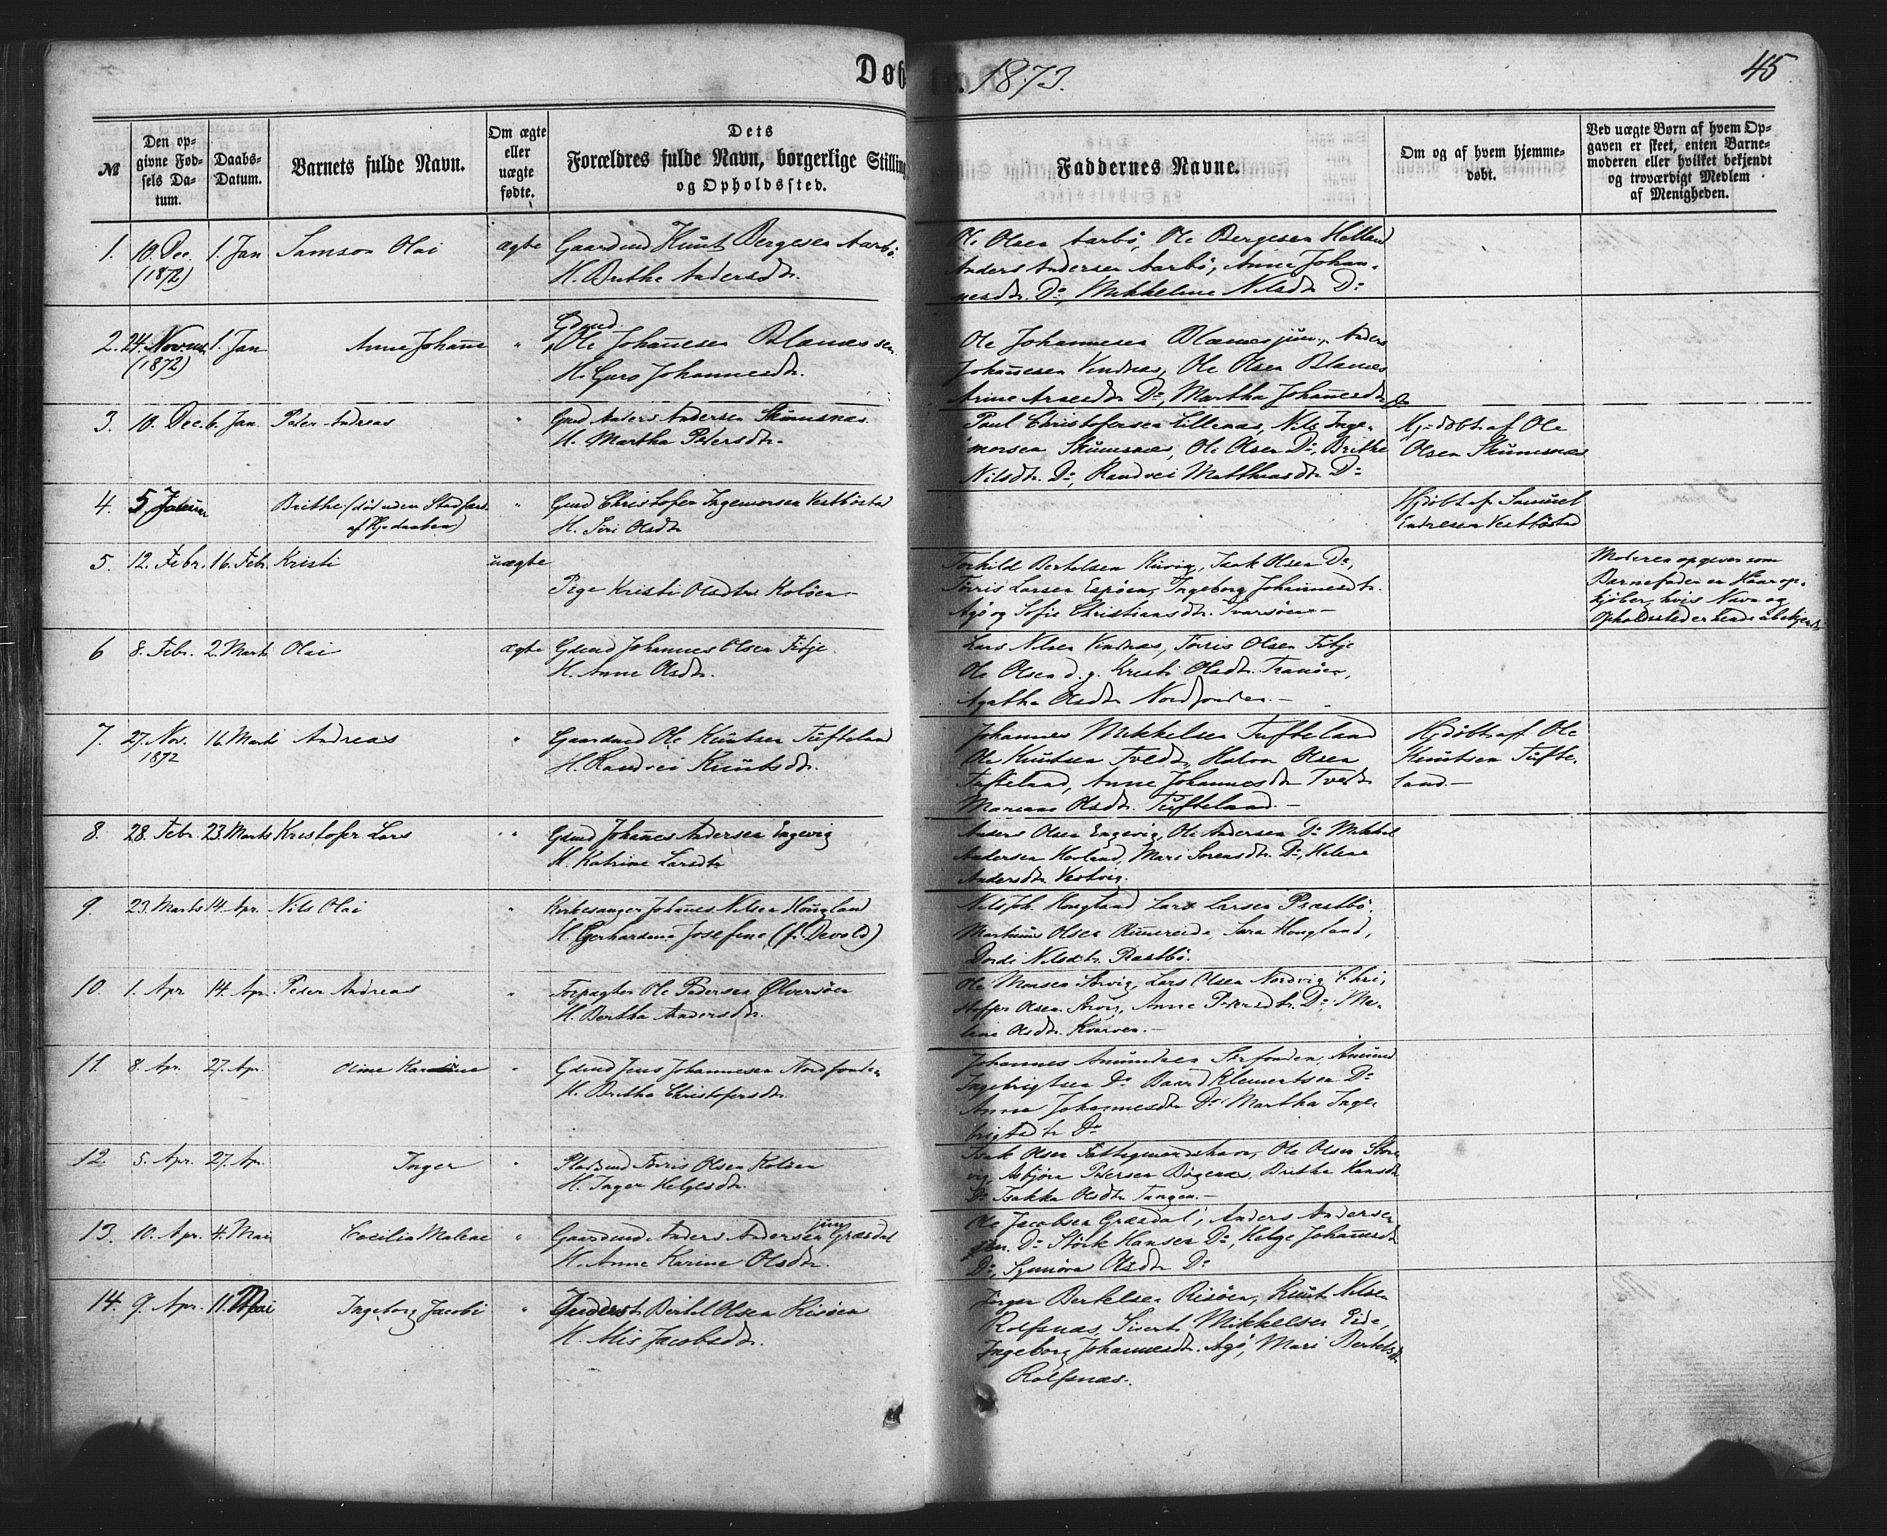 Døb 1873. 45
№
Den op-
givne Fød-
sels Da-
tum.
Daabs-
Datum.
Barnets fulde Navn.
Om ægte
eller
uægte
fødte.
Dets
Forældres fulde Navn, borgerlige Stilling
og Opholdssted.
Faddernes Navne.
Om og af hvem hjemme-
døbt.
Ved uægte Børn af hvem Op-
gaven er skeet, enten Barne-
moderen eller hvilket bekjendt
og troværdigt Medlem
af Menigheden.
1. 10. Dec. 1. Jan Samson Olai ægte Gaardmd Knut Bergesen Aarbø.
(1872) H. Brithe Andersdtr.
Ole Olsen Aarbø, Ole Bergesen Hetland
Anders Andersen Aarbø, Anne Johan-
nesdtr. Do, Mikkeline Nilsdtr Do
2. 24. Novem 1. Jan Anne Johanne " Gdmd
(1872) Ole Johannesen Blænes sen.
H. Guro Johannesdtr.
Ole Johannesen Blænes jun., Anders
Johannesen Vindnæs, Ole Olsen Blænes
Do, Martha Johannesdtr Do
3. 10. Dec. 6. Jan Peter Andreas " Gmd Anders Andersen Skumsnæs.
H. Martha Petersdtr.
Paul Christofersen Lillenæs, Nils Inge-
morsen Skumsnæs, Ole Olsen Do, Brithe
Nilsdtr. Do, Randvei Matthiasdtr Do
Hj=døbt af Ole
Olsen Skumsnæs
4. 5. Brithe (død uden Stadfæst
af Hj.daaben) " Gmd Christofer Ingemorsen Vestbøstad
H. Siri Olsdtr
Hjdøbt af Samuel
Endresen Vestbøstad
5. 12. Febr. 16. Febr. Kristi uægte
Pige Kristi Olsdtr Koløen
Torkild Bertelsen Kuvig, Isak Olsen Do,
Tørris Larsen Espøen, Ingeborg Johannesdtr.
Agø og Sofie Christiansdtr. Ivarsøen
Moderen opgiver som
Barnefader en Haarop-
kjøber, hvis Navn og
Opholdssted er hende ubekjendt
6 8. Febr. 2. Marts Olai ægte Gdmd Johannes Olsen Fitje.
H. Anne Olsdtr.
Lars Nilsen Vindnæs, Tørris Olsen Fitje
Ole Olsen d. g. Kristi Olsdtr. Tranøen,
Agatha Olsdtr Nordfonden.
7. 27. Nov. 16. Marts Andreas " Gaardmd Ole Knutsen Tufteland
1872 H. Randvei Knutsdtr.
Johannes Mikkelsen Tufteland
Ole Knutsen Tvedt, Halvor Olsen
Tufteland, Anne Johannesdtr Tvedt
Mariane Olsdtr. Tufteland.
Hjdøbt af Ole
Knutsen Tufte-
land.
8. 28. Febr 23. Marts Kristofer Lars " Gdmd Johannes Andersen Engevig
H. Katrine Larsdtr
Anders Olsen Engevig, Ole Andersen Do Mikkel
Andersen Hovland, Mari Sørensdtr. Do, Helene
Andersdtr Vestvig.
9. 23. Marts 14. Apr. Nils Olai " Kirkesanger Johannes Nilsen Hougland
H. Gerhardine Josefine (f. Devold)
Nils Joh. Hougland Lars Larsen Præstbø,
Martinus Olsen Rimereide, Sara Hougland,
Dordi Nilsdtr. Præstbø.
10. 1. Apr 14. Apr. Peder Andreas " Forpagter Ole Pedersen Ølversøen
H. Bertha Andersdtr.
Ole Monsen Størvig, Lars Olsen Nordvig, Chri-
stoffer Olsen Arvig, Anne Petersdtr. Do, Ma-
lene Olsdtr. Kvarven.
11. 8. Apr. 27. Apr. Oline Karoline " Gdmd Jens Johannesen Nordfonden
H. Britha Christofersdtr.
Johannes Amundsen Sørfonden, Amund
Ingebrigtsen Do Baard Klementsen Do
Anne Johannesdtr Do Martha Inge-
brigtsdtr Do
12. 5. Apr. 27. Apr. Inger " Pladsmd Tørris Olsen Koløen
H. Inger Helgesdtr.
Isak Olsen Fattigmandshavn, Ole Olsen Stor-
vig, Asbjørn Petersen Bogenæs, Britha Hansdtr
Do Isakka Olsdtr Tangen.
13. 10. Apr. 4. Mai Cecilia Malene " Gaardmd Anders Andersen jun Græsdal
H. Anne Karine Olsdtr.
Ole Jacobsen Græsdal, Anders Andersen
sen. Do Størk Hansen Do, Helge Johannesdtr
Do, Synnøve Olsdtr Do
14. 9. Apr. 11. Mai Ingeborg Jacobi " Inderst Bertel Olsen Risøen
H. Alis Jacobsdtr.
Jørgen Bertelsen Risøen, Knut Nilsen
Rolfsnæs, Sivert Mikkelsen Eide,
Ingeborg Johannesdtr. Agø, Mari Bertelsdtr
Rolfsnæs.